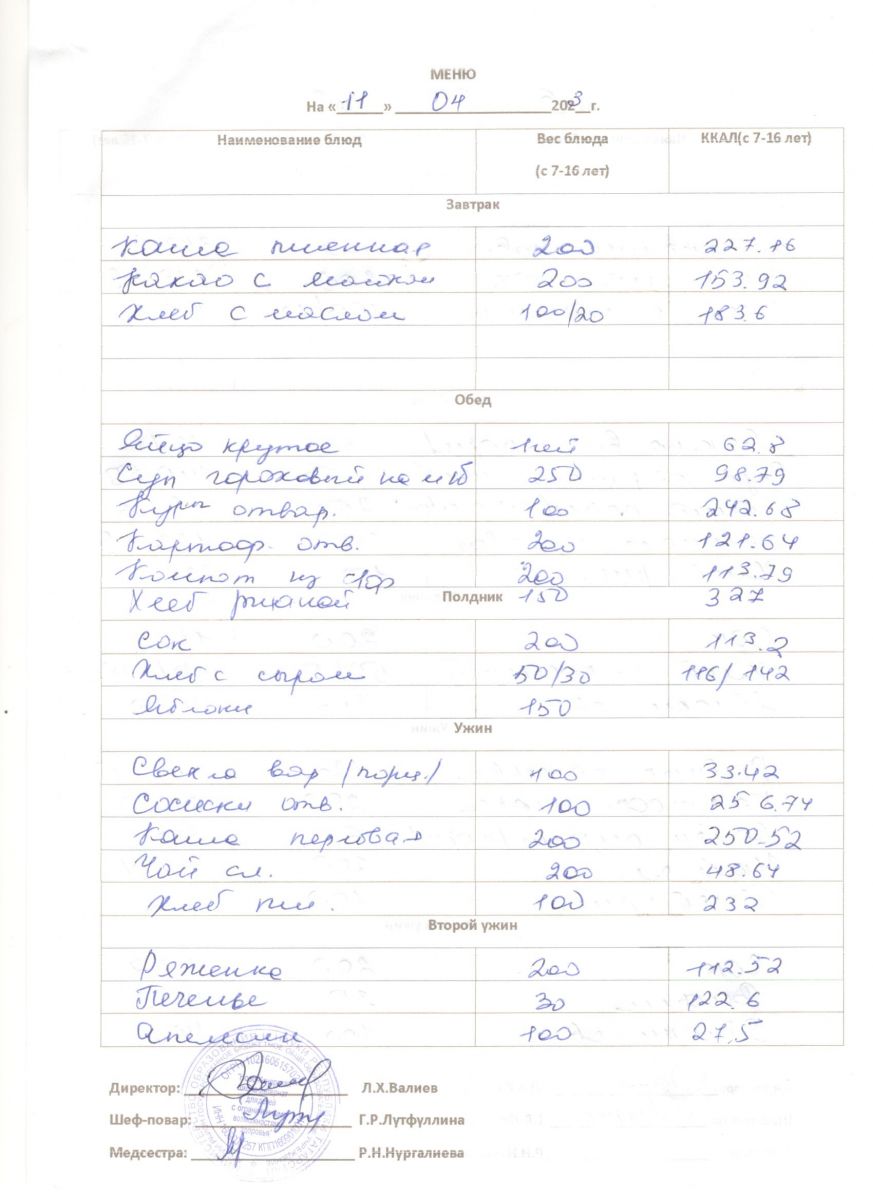 МЕНЮ
На « 11 » 04 2023 г.
Наименование блюд Вес блюда (с 7-16 лет) ККАЛ(с 7-16 лет)
Завтрак
Каша пшенная 200 227.16
Какао с молоком 200 153.92
Хлеб с маслом 100/20 183.6
Обед
Яйцо крутое 62.8
Суп гороховый на м/б 250 98.79
Куры отвар. 100 242.68
Картоф. отв. 200 121.64
Компот из 200 113.79
Хлеб ржаной 150 327
Полдник
Сок 200 113.2
Хлеб с сыром 50/30 116/142
Яблоки 150
Ужин
Свекла вар /порц./ 100 33.42
Сосиски отв. 100 256.74
Каша перловая 200 250.52
Чай сл. 200 48.64
Хлеб пш. 100 232
Второй ужин
Ряженка 200 112.52
Печенье 30 122.6
Апельсин 100 27,5
Директор: Л.Х.Валиев
Шеф-повар: Г.Р.Лутфуллина
Медсестра: Р.Н.Нургалиева